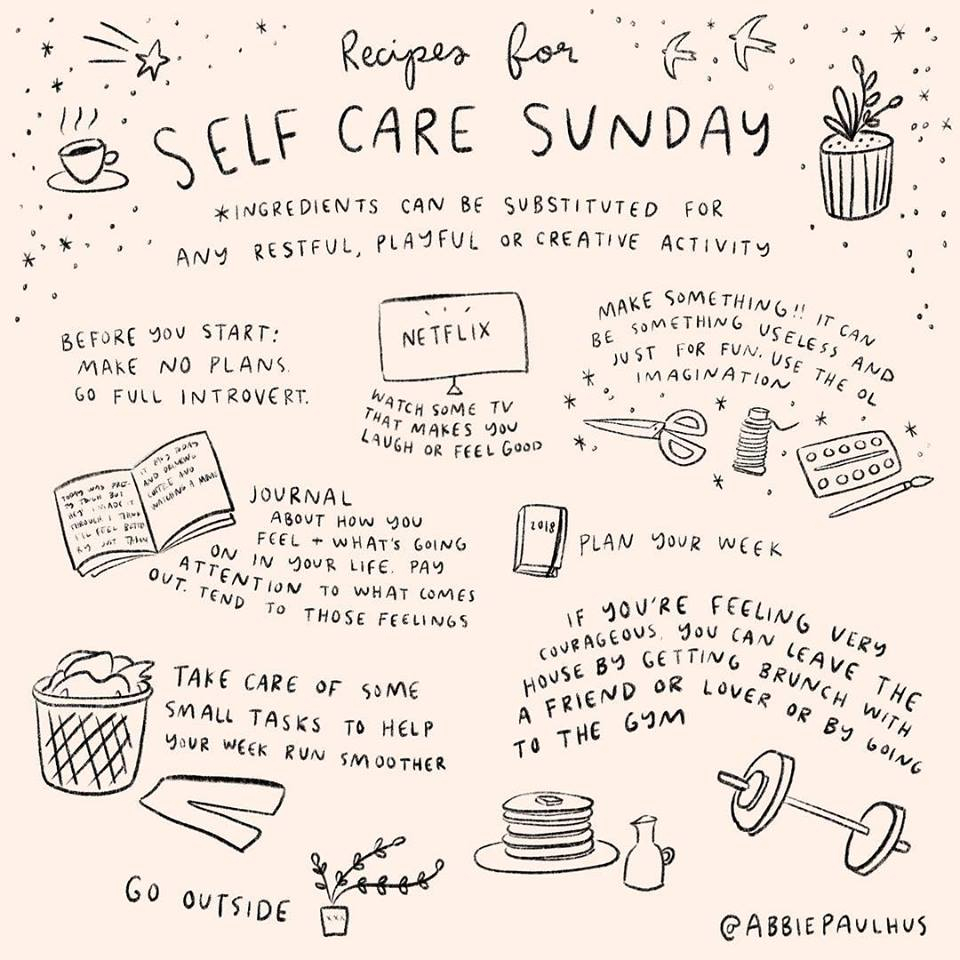 Recipes for
SELF CARE SUNDAY
*INGREDIENTS CAN BE SUBSTITUTED FOR
ANY RESTFUL, PLAYFUL OR CREATIVE ACTIVITY
BEFORE YOU START:
MAKE NO PLANS.
GO FULL INTROVERT.
NETFLIX
WATCH SOME TV
THAT MAKES YOU
LAUGH OR FEEL GOOD
MAKE SOMETHING!! IT CAN
BE SOMETHING USELESS AND
JUST FOR FUN. USE THE OL
IMAGINATION
TODAY WAS PRE-
TTY TOUGH BUT
HEY I MADE IT
THROUGH I THINK
I'LL FEEL BETTER
BY JUST
IT EASY TODAY
AND DRINKING
COFFEE AND
WATCHING A MOVIE
JOURNAL
ABOUT HOW YOU
FEEL + WHAT'S GOING
ON IN YOUR LIFE. PAY
ATTENTION TO WHAT COMES
OUT. TEND TO THOSE FEELINGS
2018
PLAN YOUR WEEK
TAKE CARE OF SOME
SMALL TASKS TO HELP
YOUR WEEK RUN SMOOTHER
IF YOU'RE FEELING VERY
COURAGEOUS, YOU CAN LEAVE THE
HOUSE BY GETTING BRUNCH WITH
A FRIEND OR LOVER OR BY GOING
TO THE GYM
GO OUTSIDE
XXX
@ABBIEPAULHUS